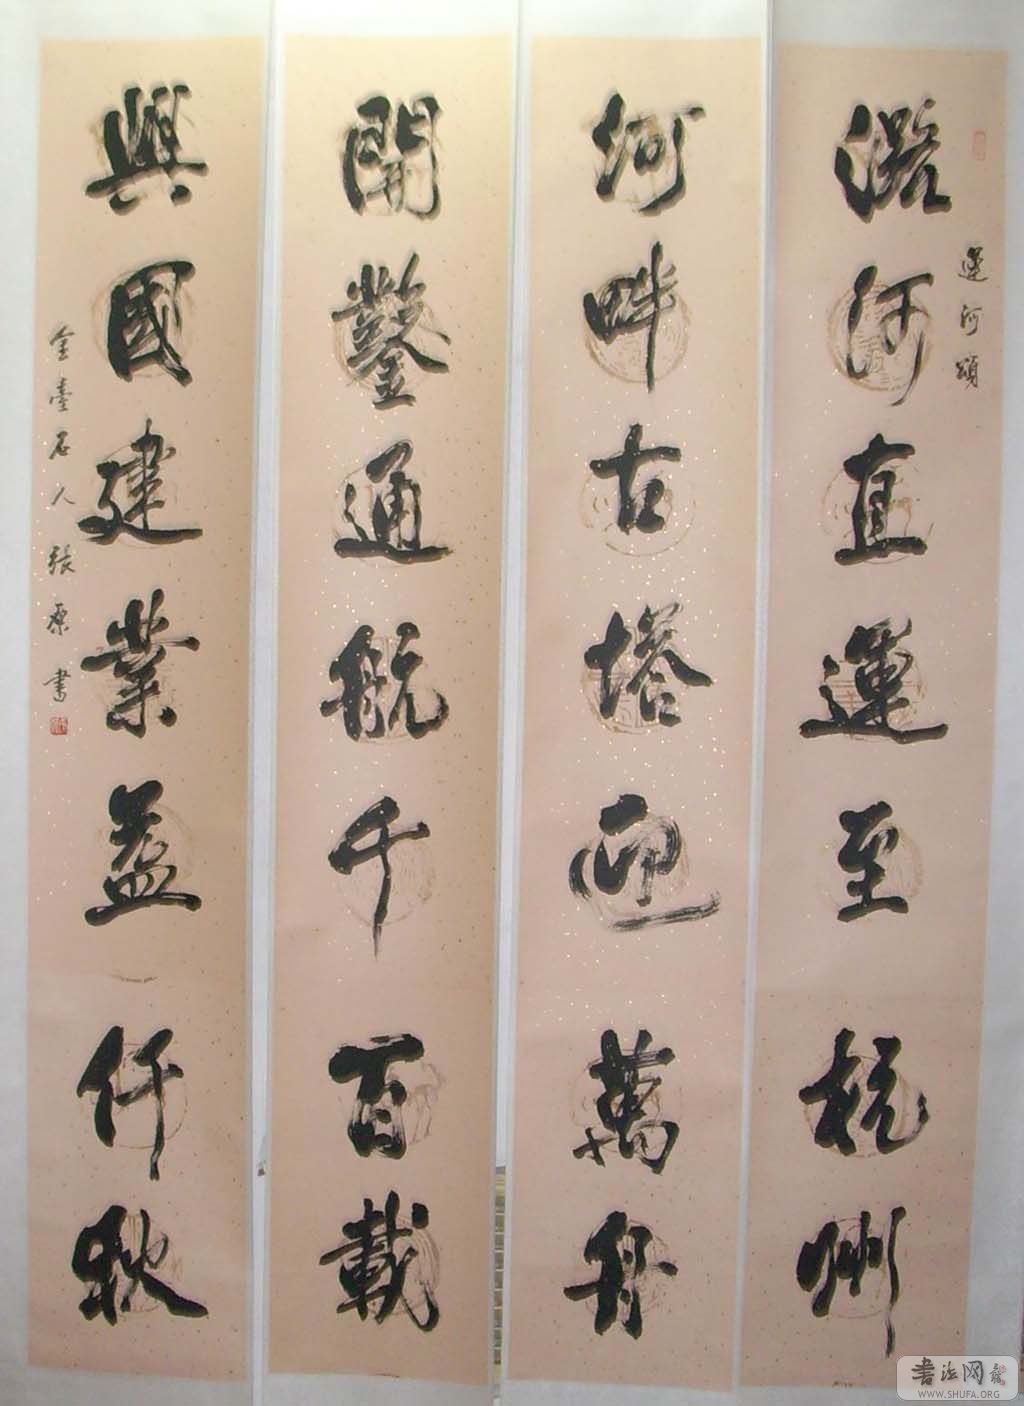 運河頌
潞河直運至杭州
河畔古塔迎萬舟
開鑿通航千百載
興國建業益仟秋
金臺石人張原書
書法网
WWW.SHUFA.ORG